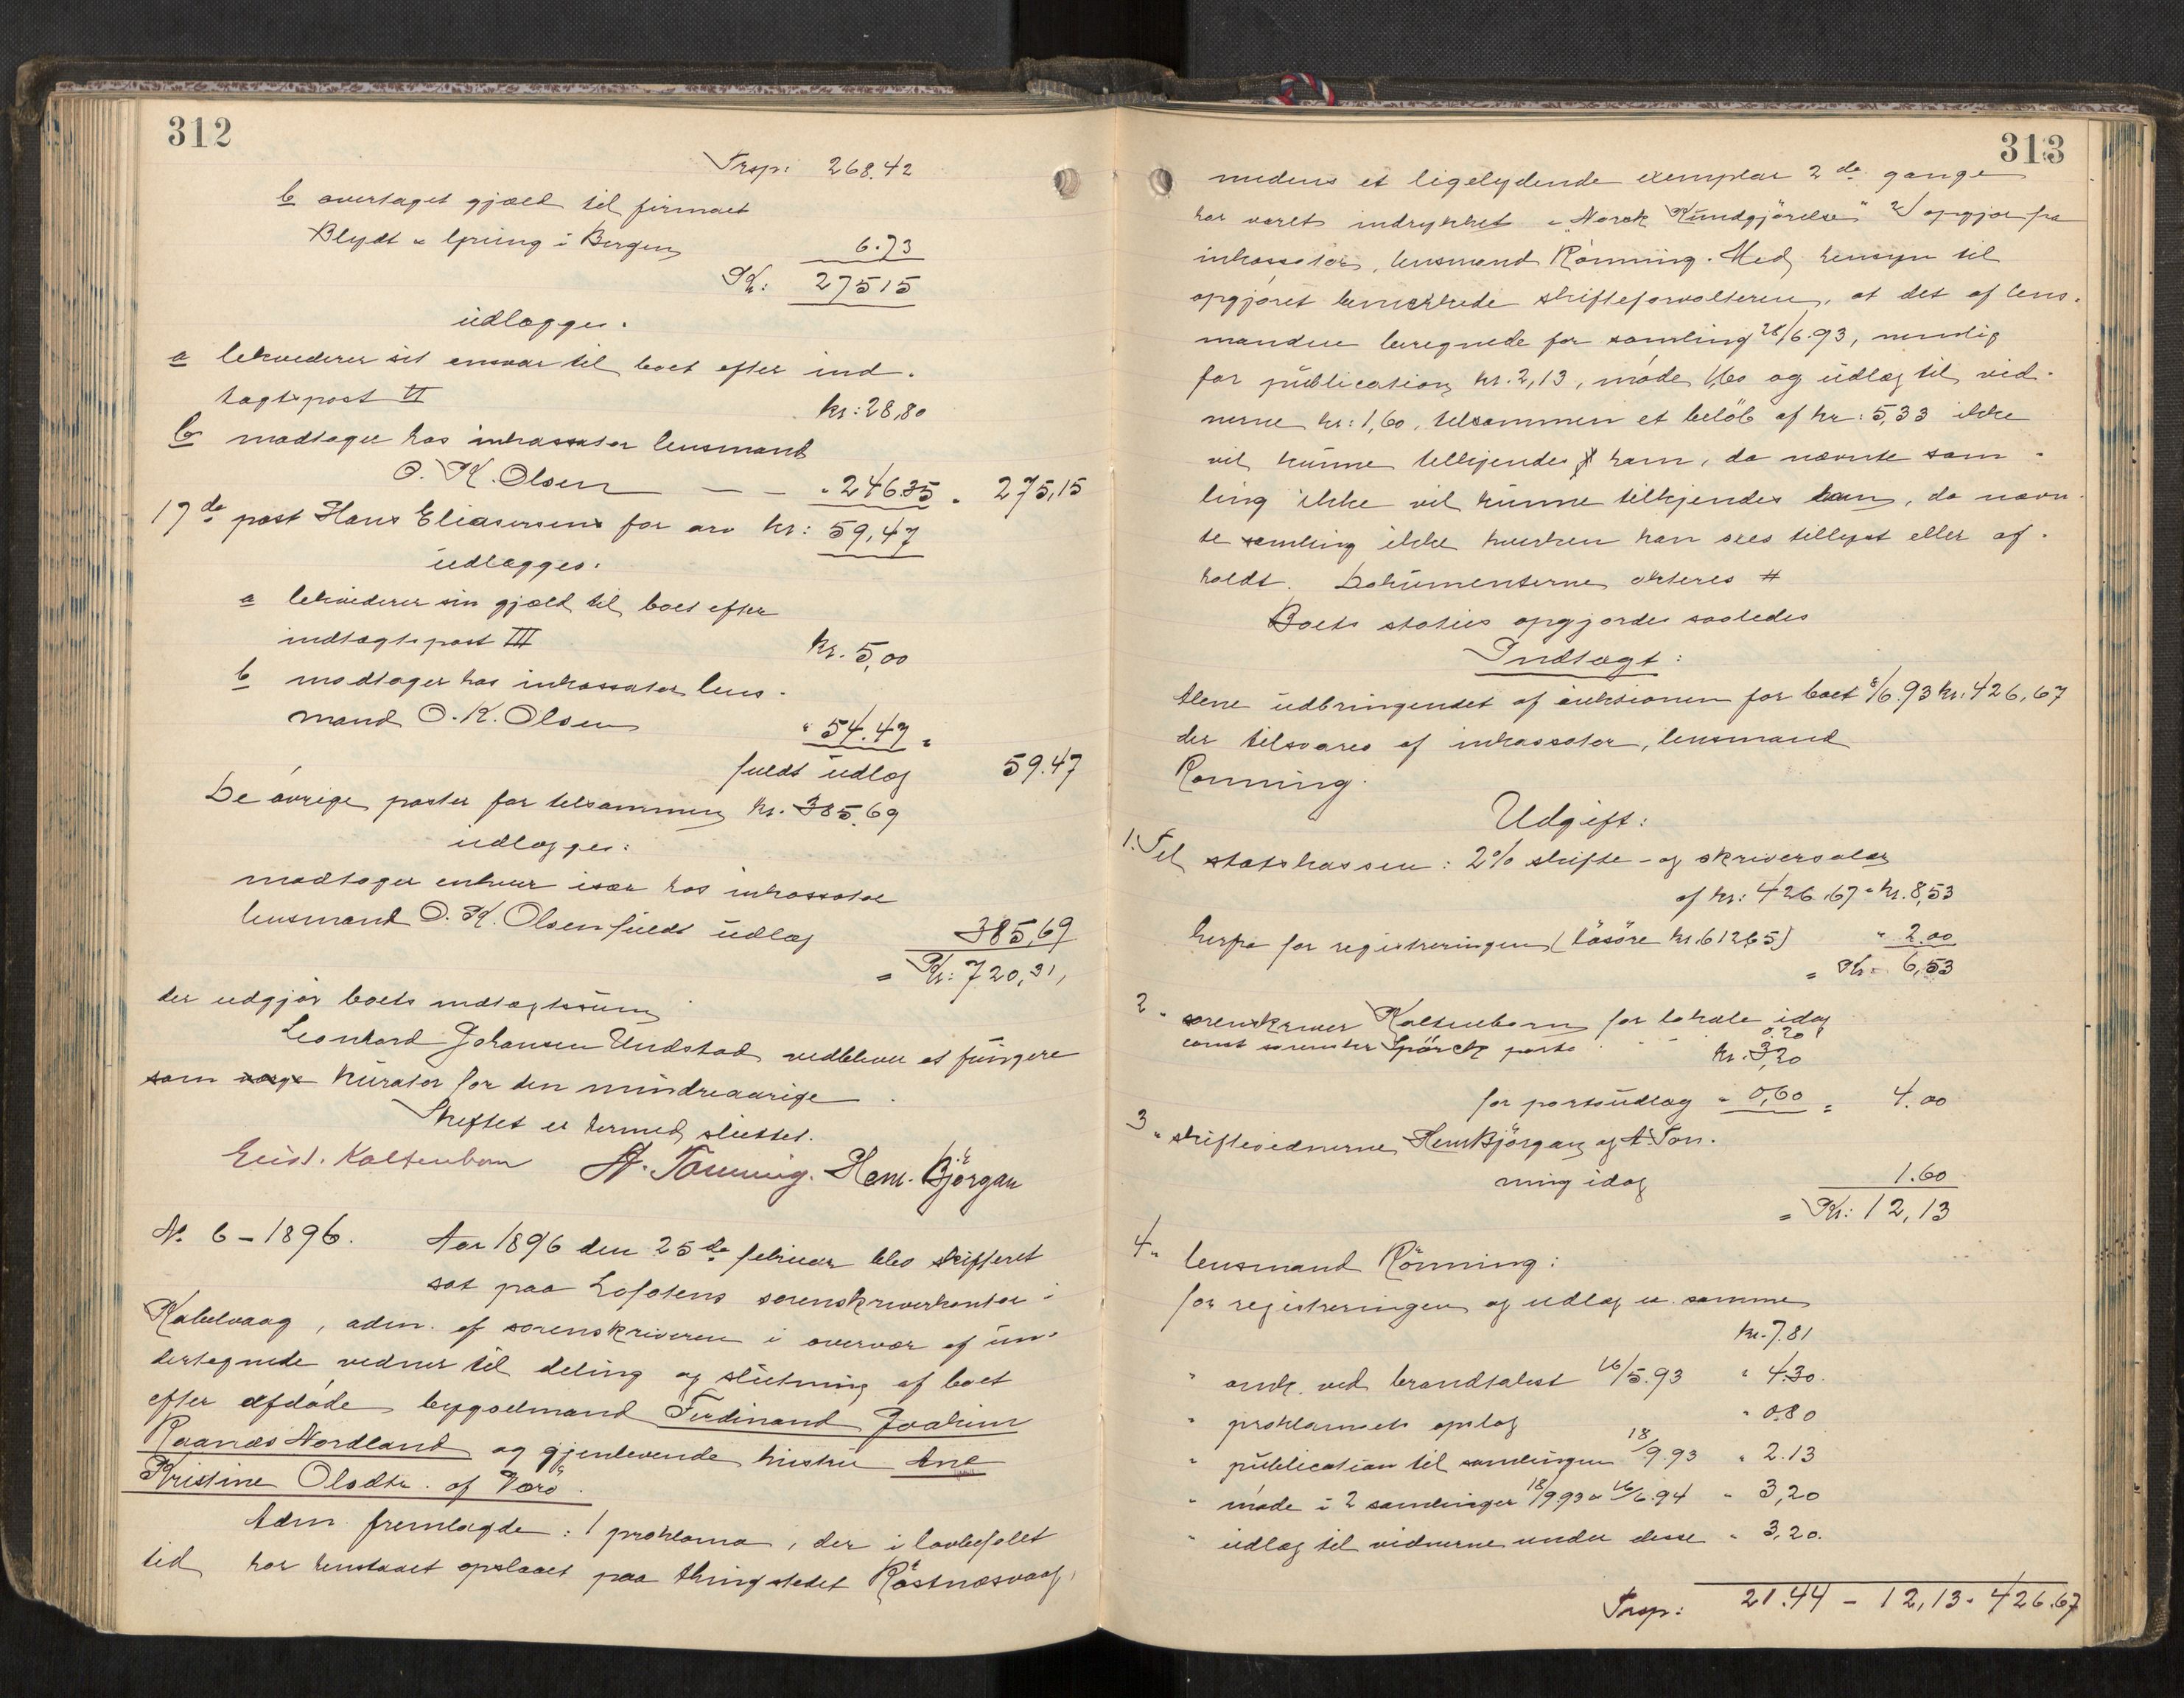 312
Trsp: 268.42
b overtaget gjæld til firmaet
Blydt & i Bergen 6.73
Kr: 275 15
udlægges.
a lekviderer sit ansvar til boet efter ind-
tægtspost VI kr: 28,80
b modtager hos inkassator lensmand
O. K. Olsen — — " 246.35 = 275,15
17de post Hans Eliasersens for arv kr: 59,47
udlægges.
a lekviderer sin gjæld til boet efter
indtægtspost III kr. 5,00
b modtager hos inkassator lens-
mand O. K. Olsen " 54.47 =
fuldt udlæg 59.47
De øvrige poster for tilsammen kr. 385,69
udlægges:
modtager enhver især hos inkassator
lensmand O. K. Olsen fuldt udlæg 385,69
= Kr: 720,31,
der udgjør boets indtægtssum
Leonhard Johansen Undstad vedbliver at fungere
som værge kurator for den mindreaarige
Skiftet er hermed sluttet.
Kaltenborn A. Tønning. Hem. Bjørgan
No 6 - 1896. Aar 1896 den 25de februar blev skifteret
sat paa Lofotens sorenskriverkontor i
Kabelvaag, adm. af sorenskriveren i overvær af un-
dertegnede vidner til deling og slutning af boet
efter afdøde bygselmand Ferdinand Joakim
Raanæs Nordland og gjenlevende hustru Ane
Kristine Olsdtr. af Værø.
Adm. fremlagde: 1 proklama, der i lovbefalet
tid har henstaaet opslaaet paa thingstedet Røstnæsvaag,
313
medens et ligelydende exemplar 2de gange
har været indrykket i "Norsk Kundgjørelse" 2) opgjør fra
inkassator, lensmand Rønning. Med hensyn til
opgjøret bemerkede skifteforvalteren, at det af lens-
manden beregnede for samling 28/6.93, nemlig
for publication kr. 2,13, møde 1,60 og udlæg til vid-
nerne kr: 1,60, tilsammen et beløb af kr: 5,33 ikke
vil kunne tilkjendes ham, da nævnte sam-
ling ikke vil kunne tilkjendes ham, da nævn-
te samling ikke hverken kan sees tillyst eller af-
holdt. Dokumenterne akteres #
Boets status opgjordes saaledes
Indtægt:
Alene udbringendet af auktionen for boet 8/6.93 kr: 426,67
der tilsvares af inkassator, lensmand
Rønning.
Udgift:
1. Til statskassen: 2% skifte- og skriversalær
af kr: 426.67 = kr. 8,53
herfra for registreringen (løsøre kr. 612,65) " 2.00
= Kr. 6,53
2 " sorenskriver Kaltenborn for lokale idag
0.20
const sorenskr Spørck porto - - kr. 3,20
for portoudlæg " 0,60 = 4.00
3 " skiftevidnerne Hem Bjørgan og A. Tøn-
ning idag 1.60
= Kr: 12,13
4 " lensmand Rønning:
for registreringen og udlæg u. samme
kr. 7.81
" ved brandtakst 16/5.93 " 4.30.
" proklamaets opslag " 0.80
" publication til samlingen 18/9.93 " 2.13
" møde i 2 samlinger 18/9.93 & 16/6.94 " 3,20
" udlæg til vidnerne under disse " 3,20.
Trsp: 21.44 - 12,13 - 426.67